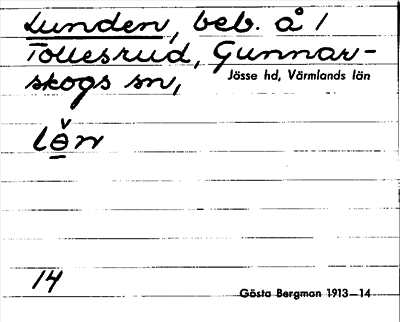 Lunden, beb. å 1
Tollesrud, Gunnar-
skogs sn, Jösse hd, Värmlands län
lə̌n
14
Gösta Bergman 1913—14